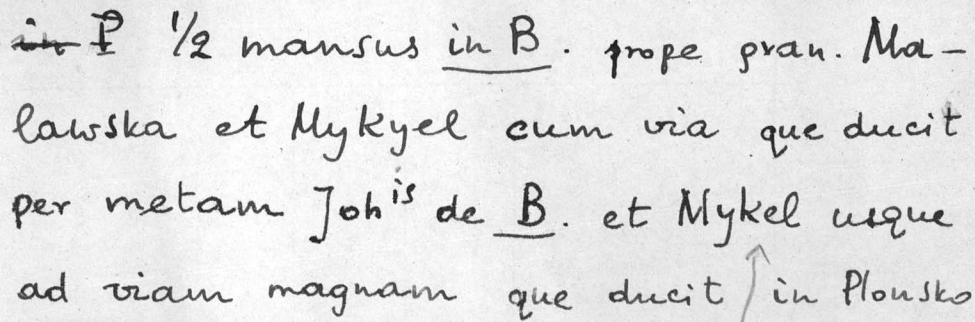 in P 1/2 mansus in B. prope gran. Ma-
lawska et Mykyel cum via que ducit
per metam Joh^is de B. et Mykel usque
ad viam magnam que ducit in Plonsko